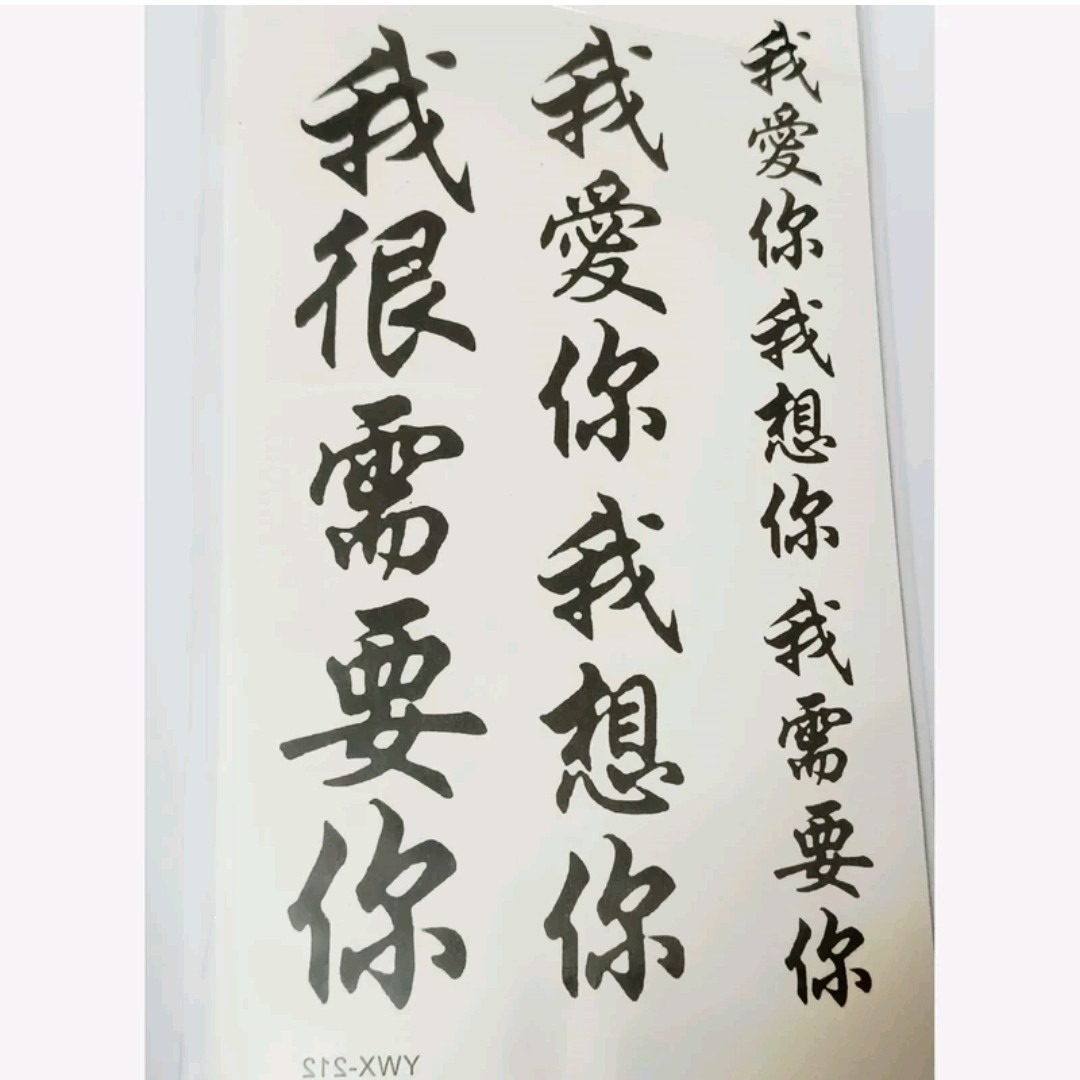 我愛你我想你我需要你
我愛你我想你
我很需要你
YWX-212